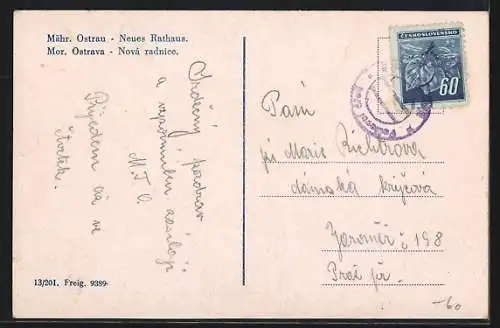 Mähr. Ostrau - Neues Rathaus.
Mor. Ostrava - Nová radnice.
Srdečný pozdrav
a vzpomínku zasílají
M. T. O.
Přijedem až ve
čtvrtek.
13/201. Freig. 9389.
ČESKOSLOVENSKO
60
Paní
Marie Richtrova
dámská krýčová
Jaroměř č 198